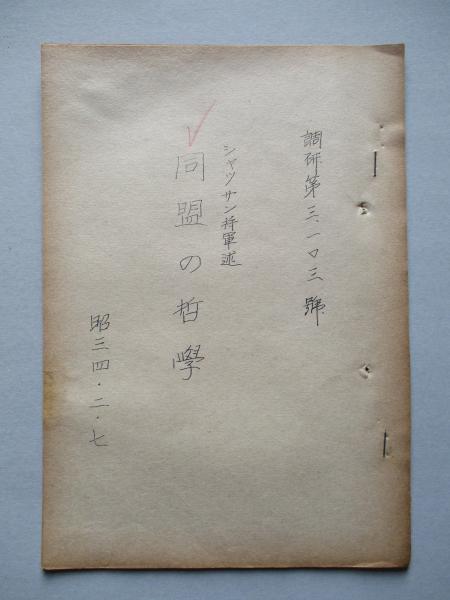 調研第三一〇三號
シャッサン将軍述
同盟の哲學
昭三四・二・七